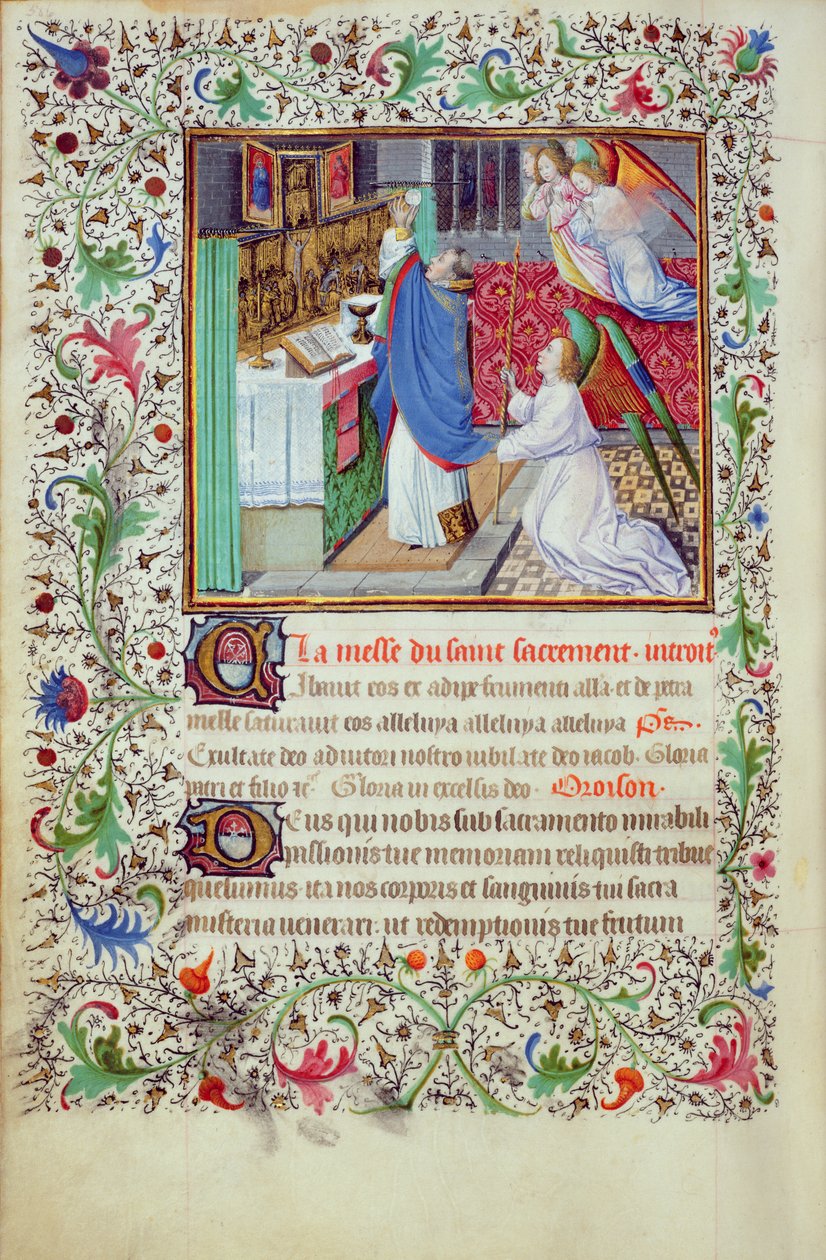 La messe du saint sacrement. introit
Cibauit eos ex adipe frumenti alla. et de petra
melle saturauit eos alleluya alleluya alleluya Ps.
Exultate deo adiutori nostro iubilate deo iacob. Gloria
patri et filio Gloria in excelsis deo. Oroison.
Deus qui nobis sub sacramento mirabili
passionis tue memoriam reliquisti tribue
quesumus. ita nos corporis et sanguinis tui sacra
misteria uenerari. ut redemptionis tue frutum